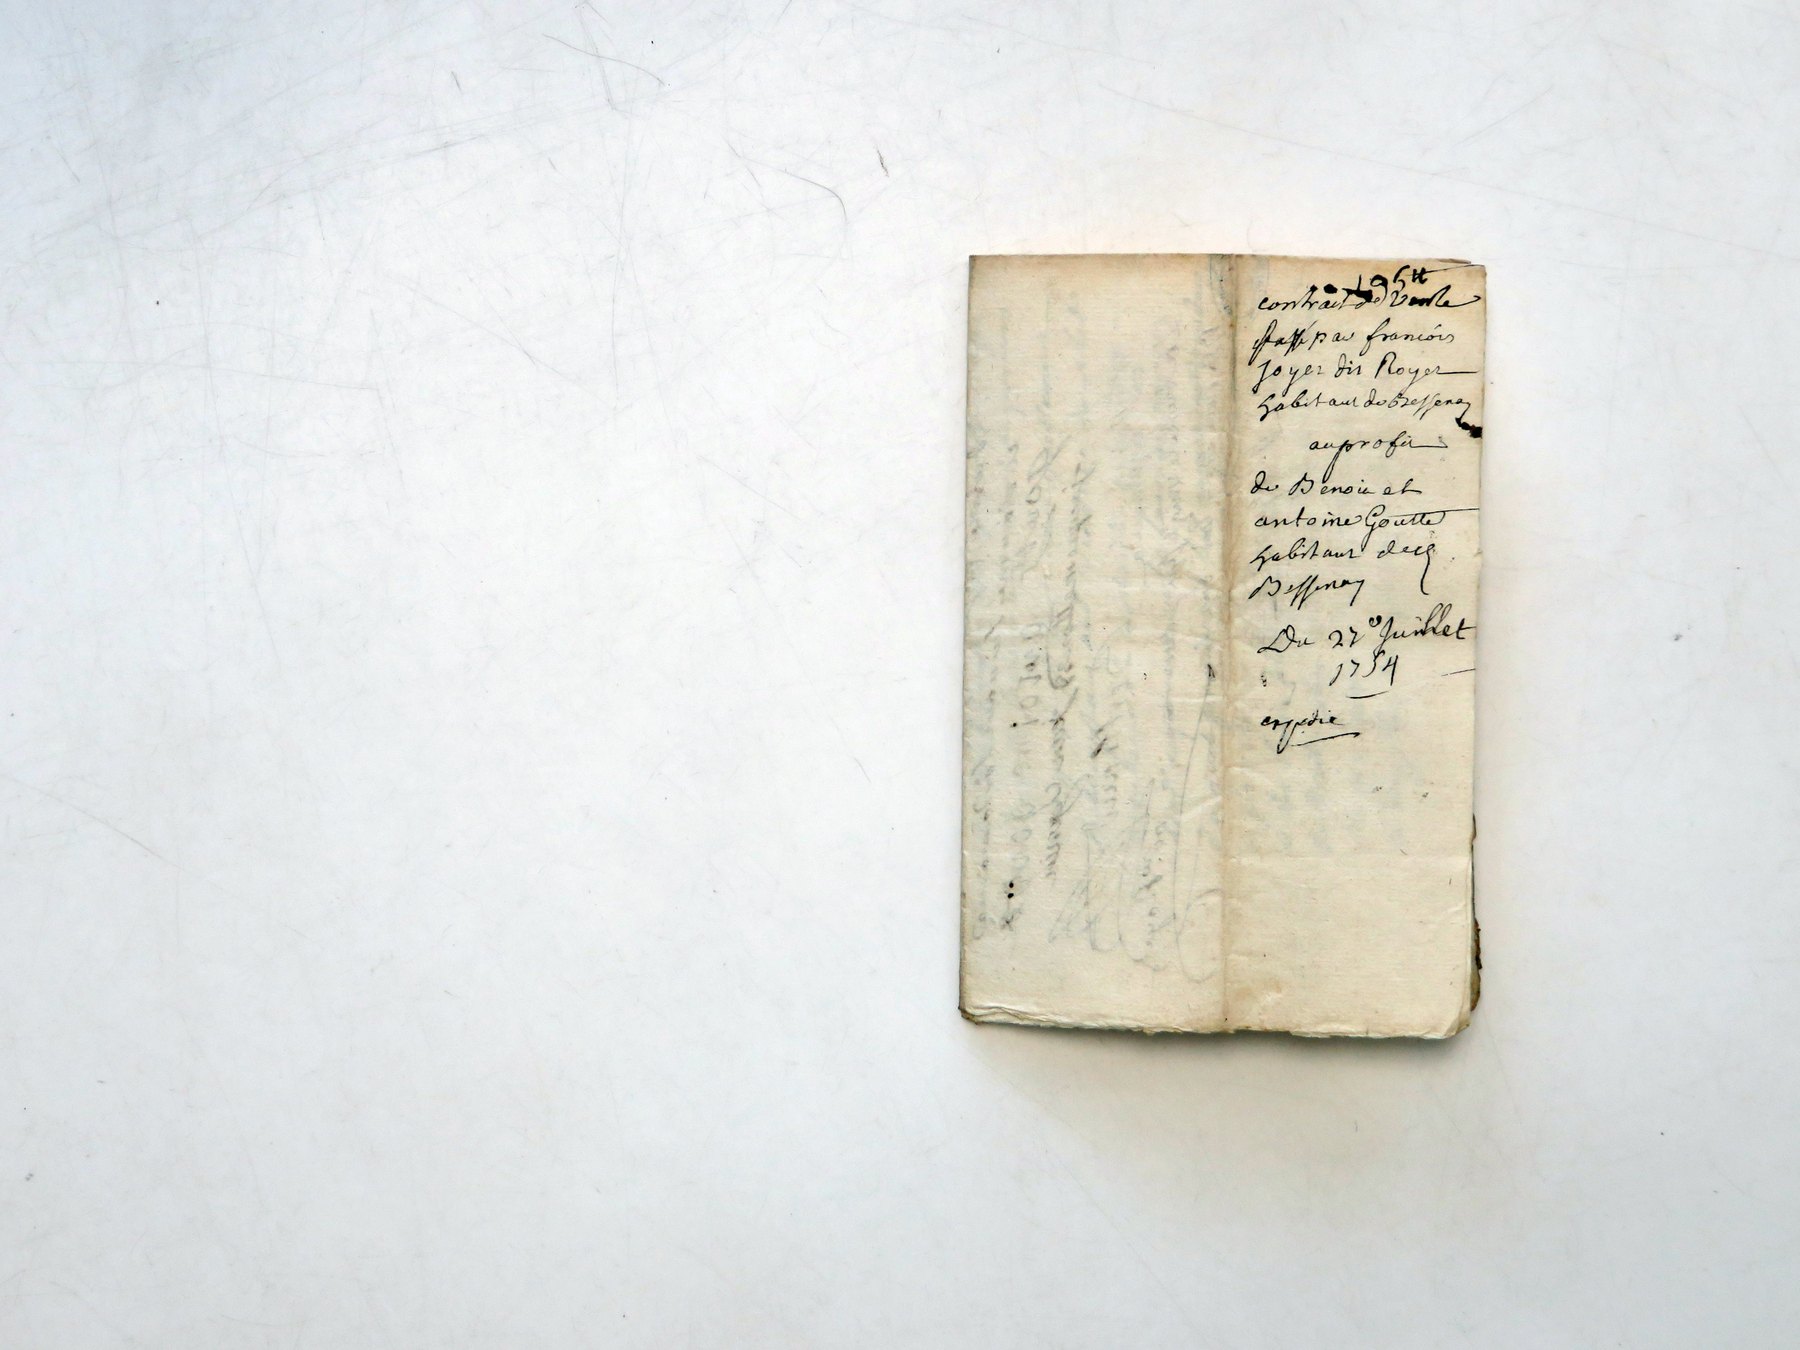 195tt
contract de Vente
passé par francois
Joyer dit Royer
habitant de Bessenay
au profit
de Benoit et
antoine Goutte
habitant de cq
Bessenay
Du 27e Juillet
1754
expedie